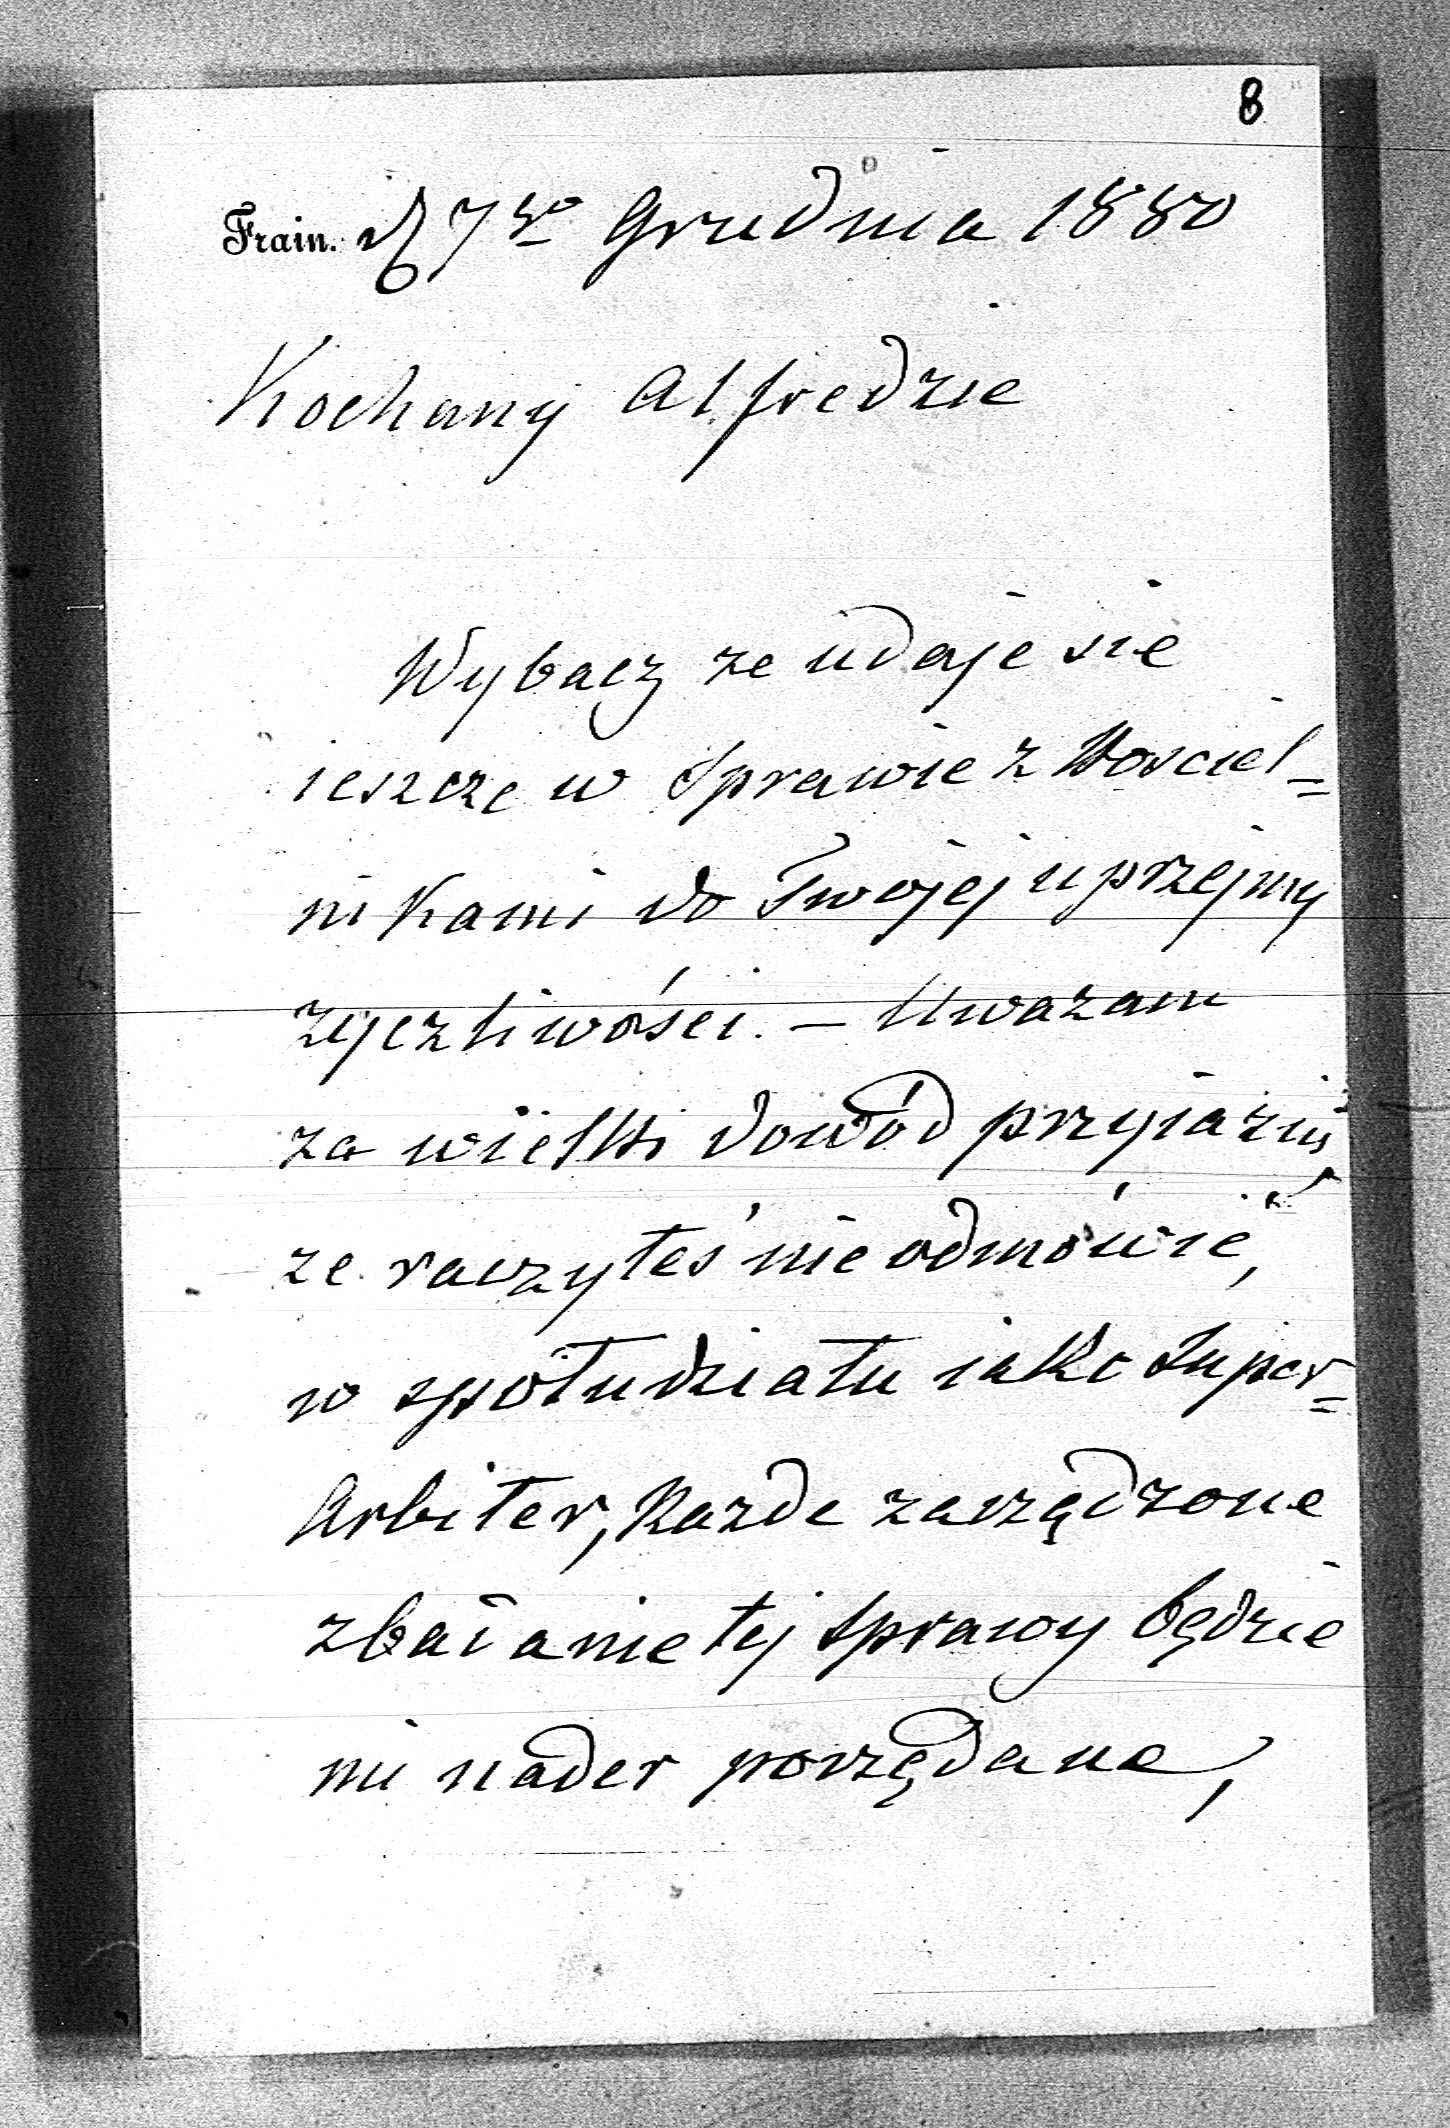 8
Frain. d 7go Grudnia 1880
Kochany Alfredzie
Wybacz ze udaje się
ieszcze w Sprawie z Kosciel=
nikami do Twojej uprzejmy
zyczliwości. — Uwazam
za wielki dowód przyiazni
ze raczyłeś nie odmówić,
w spółudziału iako Super=
Arbiter, Kazde zarządzone
zbaianie tej Sprawy będzie
mi nader porządane,